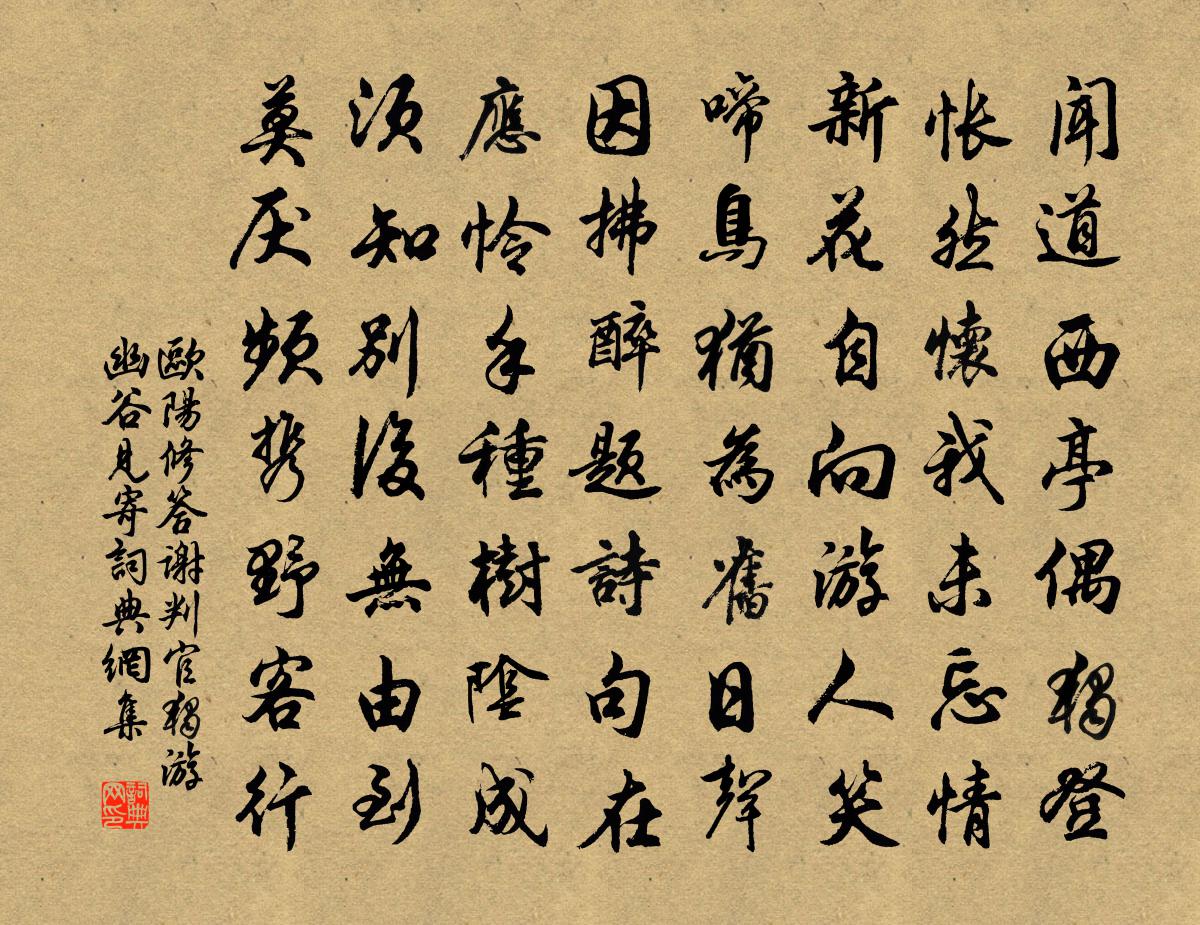 闻道西亭偶獨登
怅然懷我未忘情
新花自向游人笑
啼鳥猶為舊日聲
因拂醉题詩句在
應怜手種樹陰成
须知别後無由到
莫厌频携野客行
歐陽修答谢判官獨游
幽谷見寄詞典網集
詞典
网印